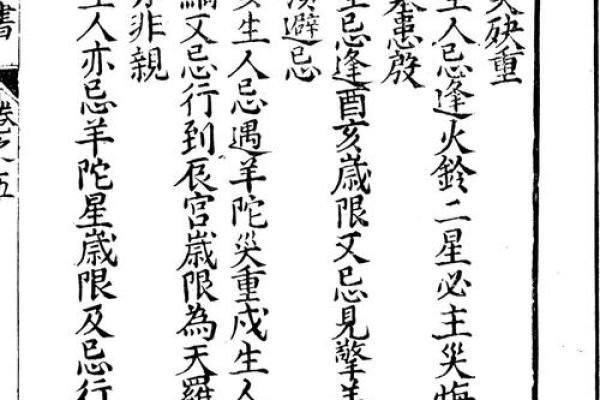 殃重
生人忌逢火鈴二星必主災悔
患殷
忌逢酉亥嵗限又忌見擎羊
須避忌
生人忌遇羊陀災重戌生人
又忌行到辰宮嵗限為天羅
非親
生人亦忌羊陀星嵗限及忌行
書
卷之五